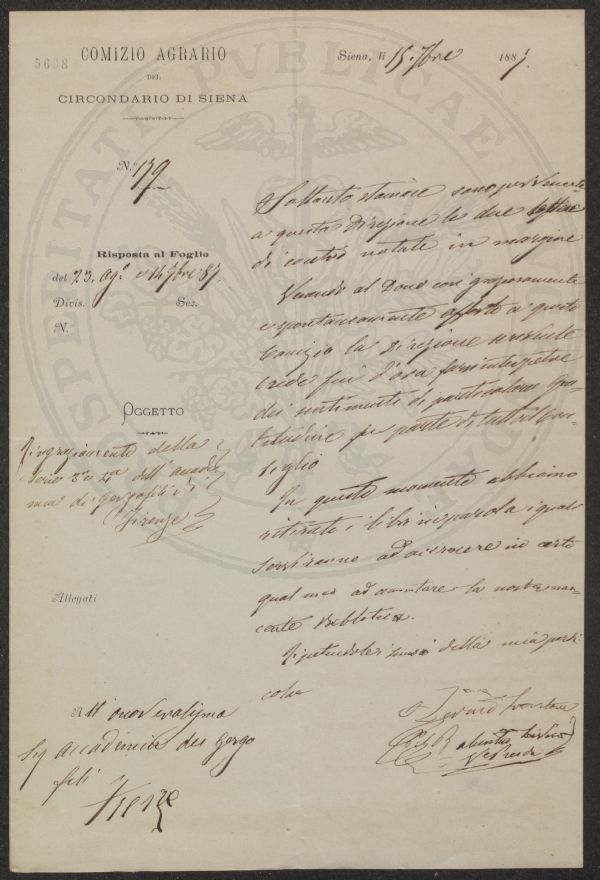 5608
COMIZIO AGRARIO
DEL
CIRCONDARIO DI SIENA
Siena, li 15. 7bre 1887.
N.° 139
Risposta al Foglio
del 23. Ago. e 14 7bre 87.
Divis. Sez.
N.
OGGETTO
Ringraziamento della
Serie 3a e 4a dell'accade
mia dei Georgofili di
Firenze
Allegati
Soltanto stamane sono pervenute
a questa Direzione le due lettere
di contro notate in margine
Venendo al Dono così generosamente
e spontaneamente offerto a questo
Comizio la Direzione
crede fin d'ora farsi interpetre
dei sentimenti di particolare gra
titudine per parte di tutto il Con
siglio
In questo momento abbiamo
ritirati i libri in parola i quali
serviranno ad accrescere in certo
qual modo ad aumentare la nostra nas
cente Biblioteca.
Ripetendole i sensi della mia parti
colar
All'onorevolissima
Accademia dei Georgo
fili
Firenze
PUBLICAE